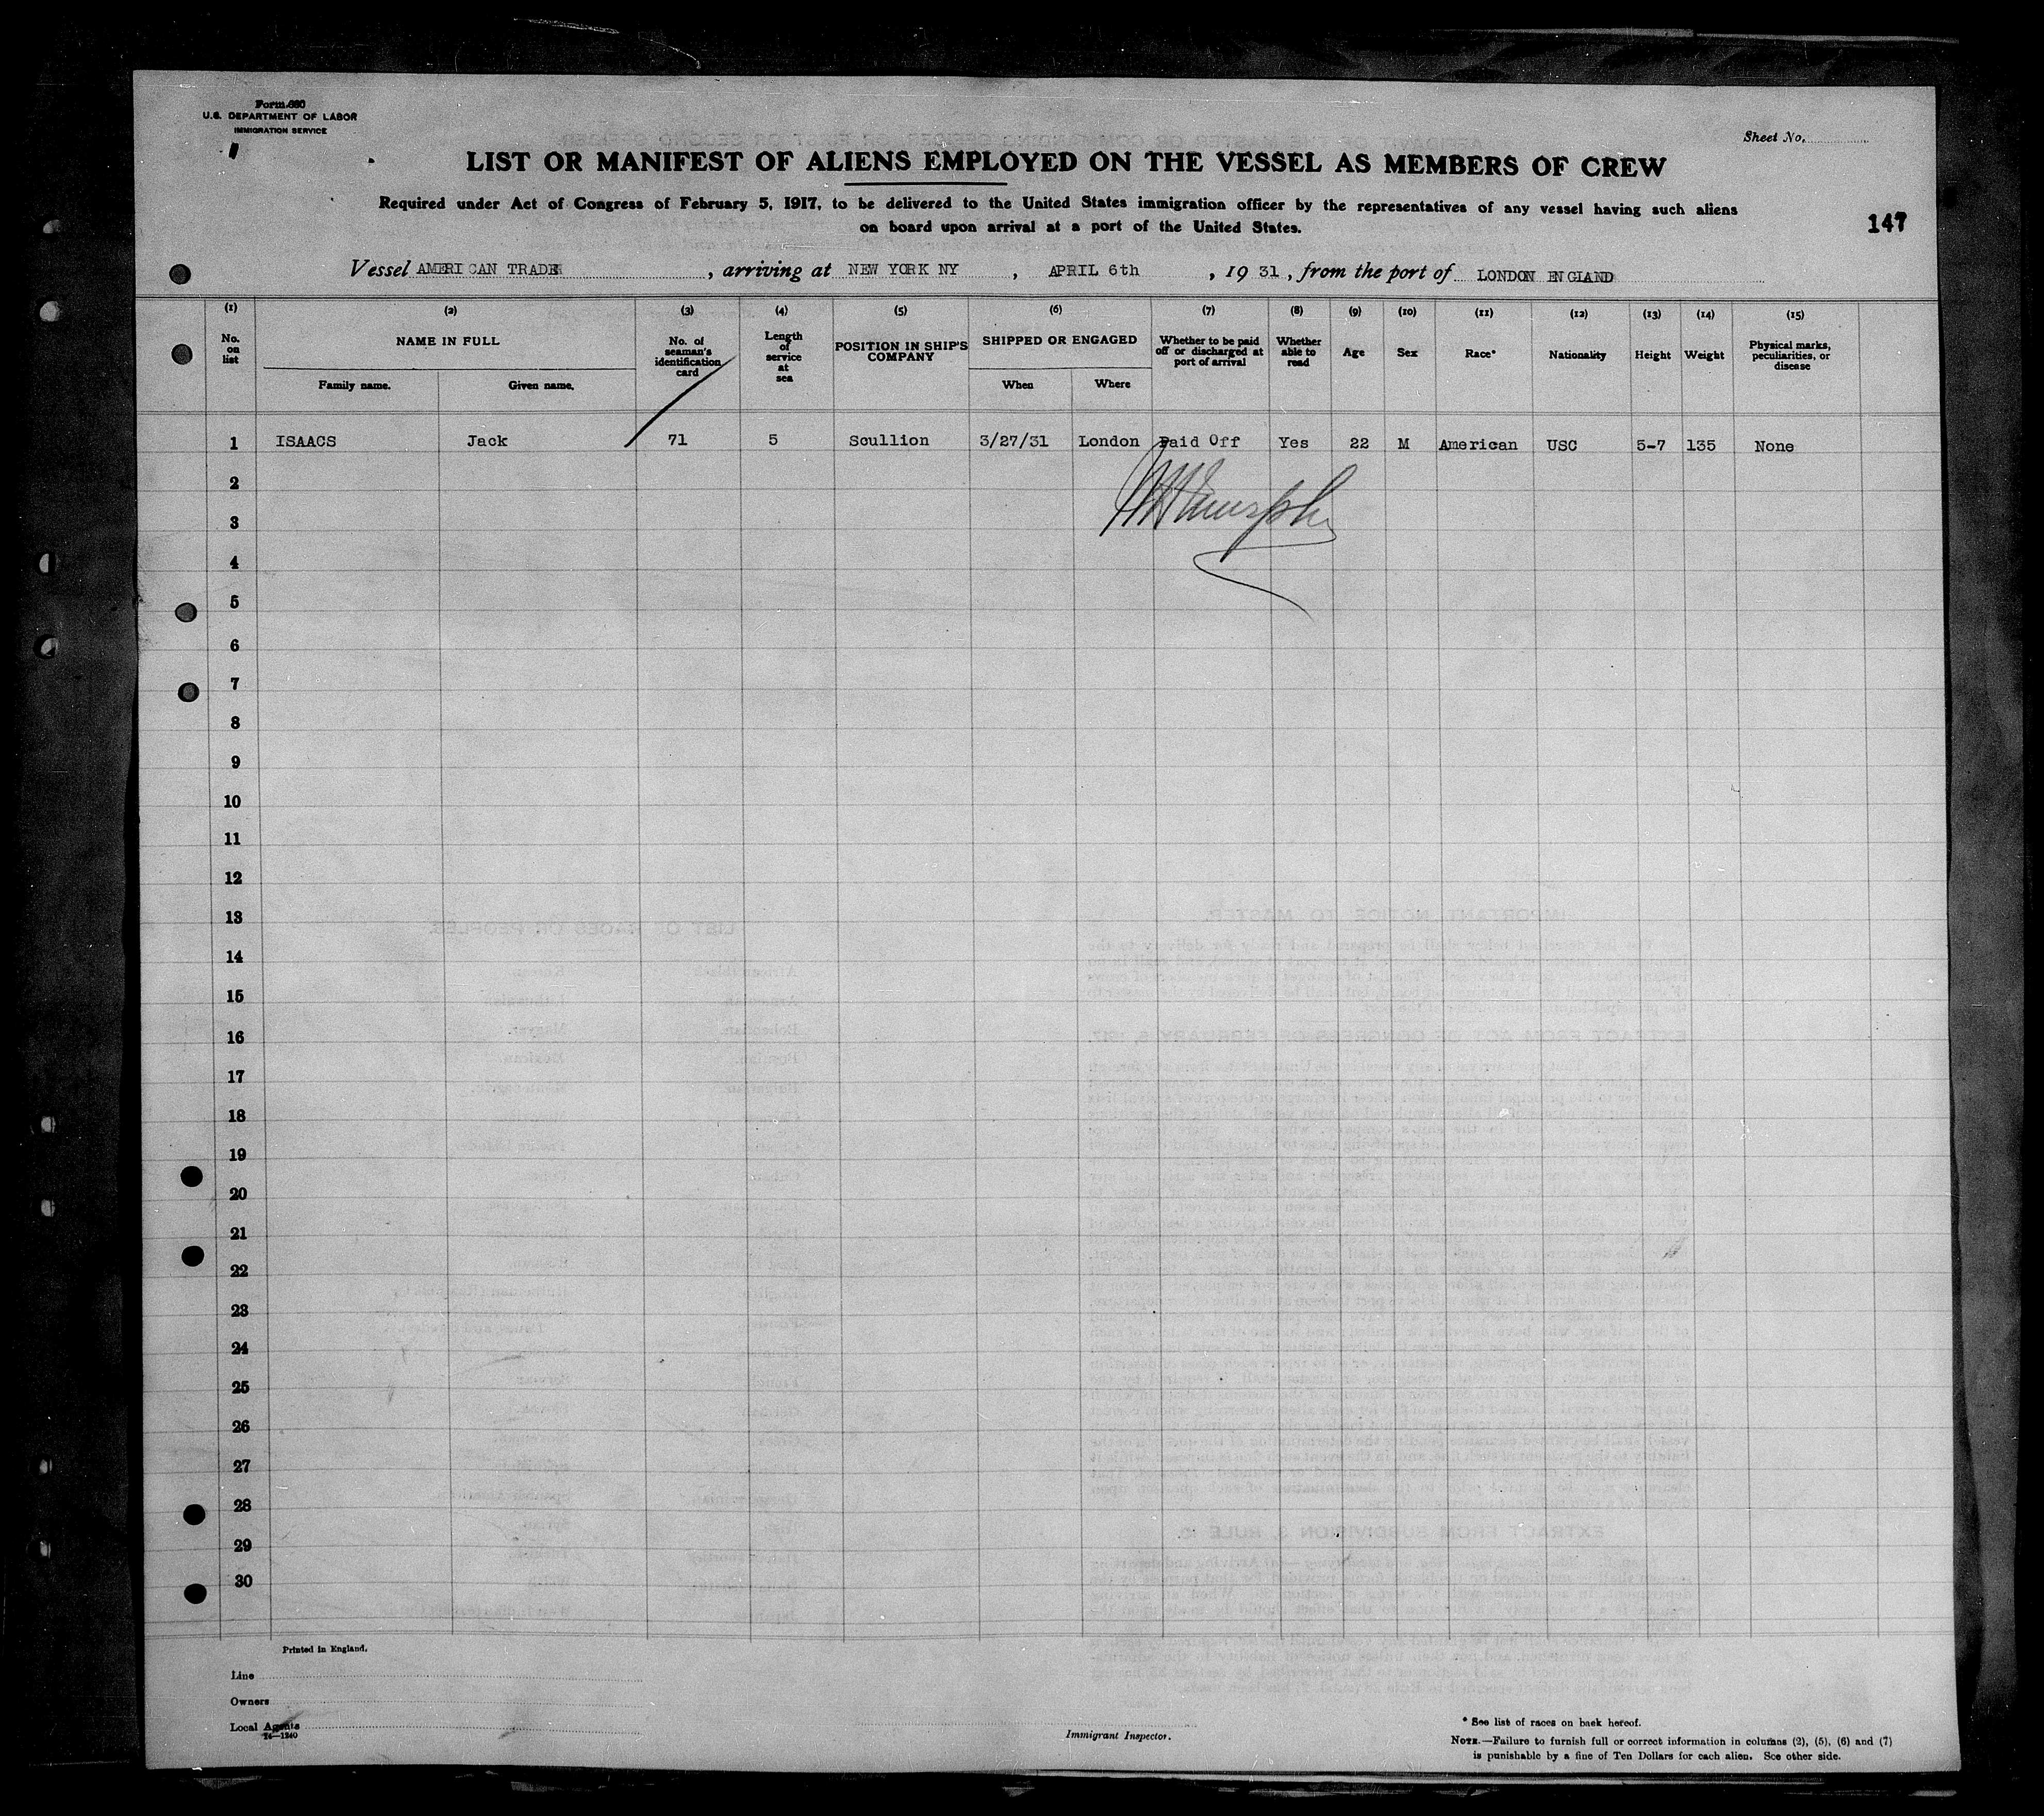 Form 680
U.S. DEPARTMENT OF LABOR
IMMIGRATION SERVICE
Sheet No.
LIST OR MANIFEST OF ALIENS EMPLOYED ON THE VESSEL AS MEMBERS OF CREW
Required under Act of Congress of February 5, 1917, to be delivered to the United States immigration officer by the representatives of any vessel having such aliens
on board upon arrival at a port of the United States.
147
Vessel AMERICAN TRADER, arriving at NEW YORK NY, APRIL 6th, 1931, from the port of LONDON ENGLAND
(1) (2) (3) (4) (5) (6) (7) (8) (9) (10) (11) (12) (13) (14) (15)
No. on list
NAME IN FULL
Family name. Given name.
No. of seaman's identification card
Length of service at sea
POSITION IN SHIP'S COMPANY
SHIPPED OR ENGAGED
When Where
Whether to be paid off or discharged at port of arrival
Whether able to read
Age
Sex
Race*
Nationality
Height
Weight
Physical marks, peculiarities, or disease
1 ISAACS Jack 71 5 Scullion 3/27/31 London Paid Off Yes 22 M American USC 5-7 135 None
2
3
4
5
6
7
8
9
10
11
12
13
14
15
16
17
18
19
20
21
22
23
24
25
26
27
28
29
30
Printed in England.
Line
Owners
Local Agents
14—1240
Immigrant Inspector.
* See list of races on back hereof.
NOTE.—Failure to furnish full or correct information in columns (2), (5), (6) and (7)
is punishable by a fine of Ten Dollars for each alien. See other side.